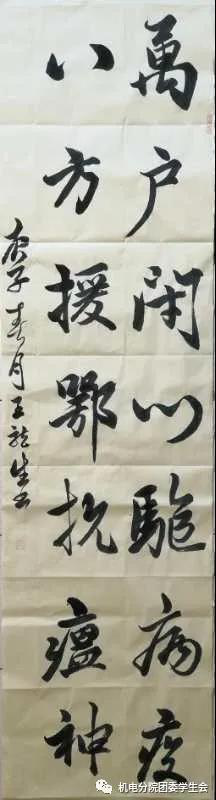 萬户闭门駈病疫
八方援鄂抗瘟神
庚子春月王龍生书
机电分院团委学生会